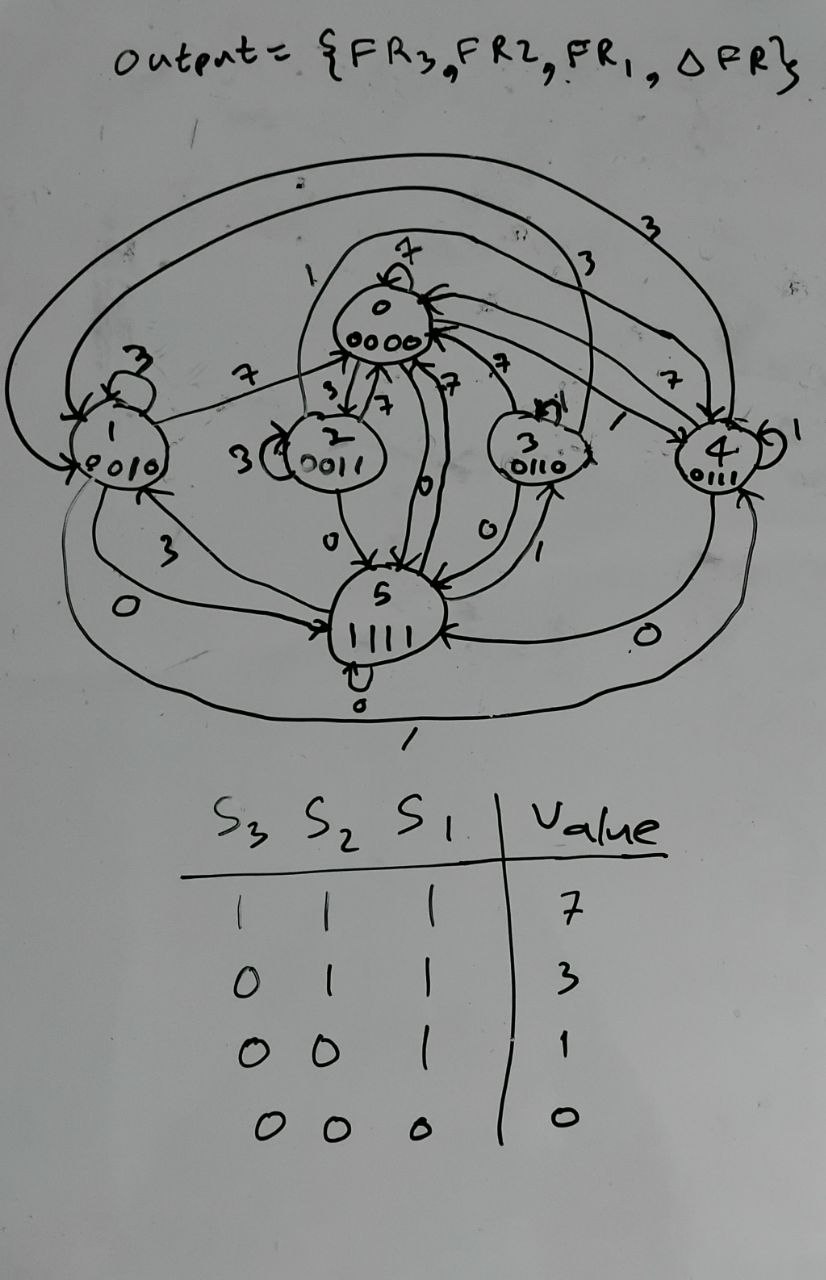 output = {FR3, FR2, FR1, ΔFR}
3
3
1
7
0
0000
3
7
3
7
7
7
7
1
1
0010
3
2
0011
1
3
0110
1
4
0111
1
0
0
0
1
3
0
5
1111
0
0
1
S3 S2 S1 Value
1 1 1 7
0 1 1 3
0 0 1 1
0 0 0 0